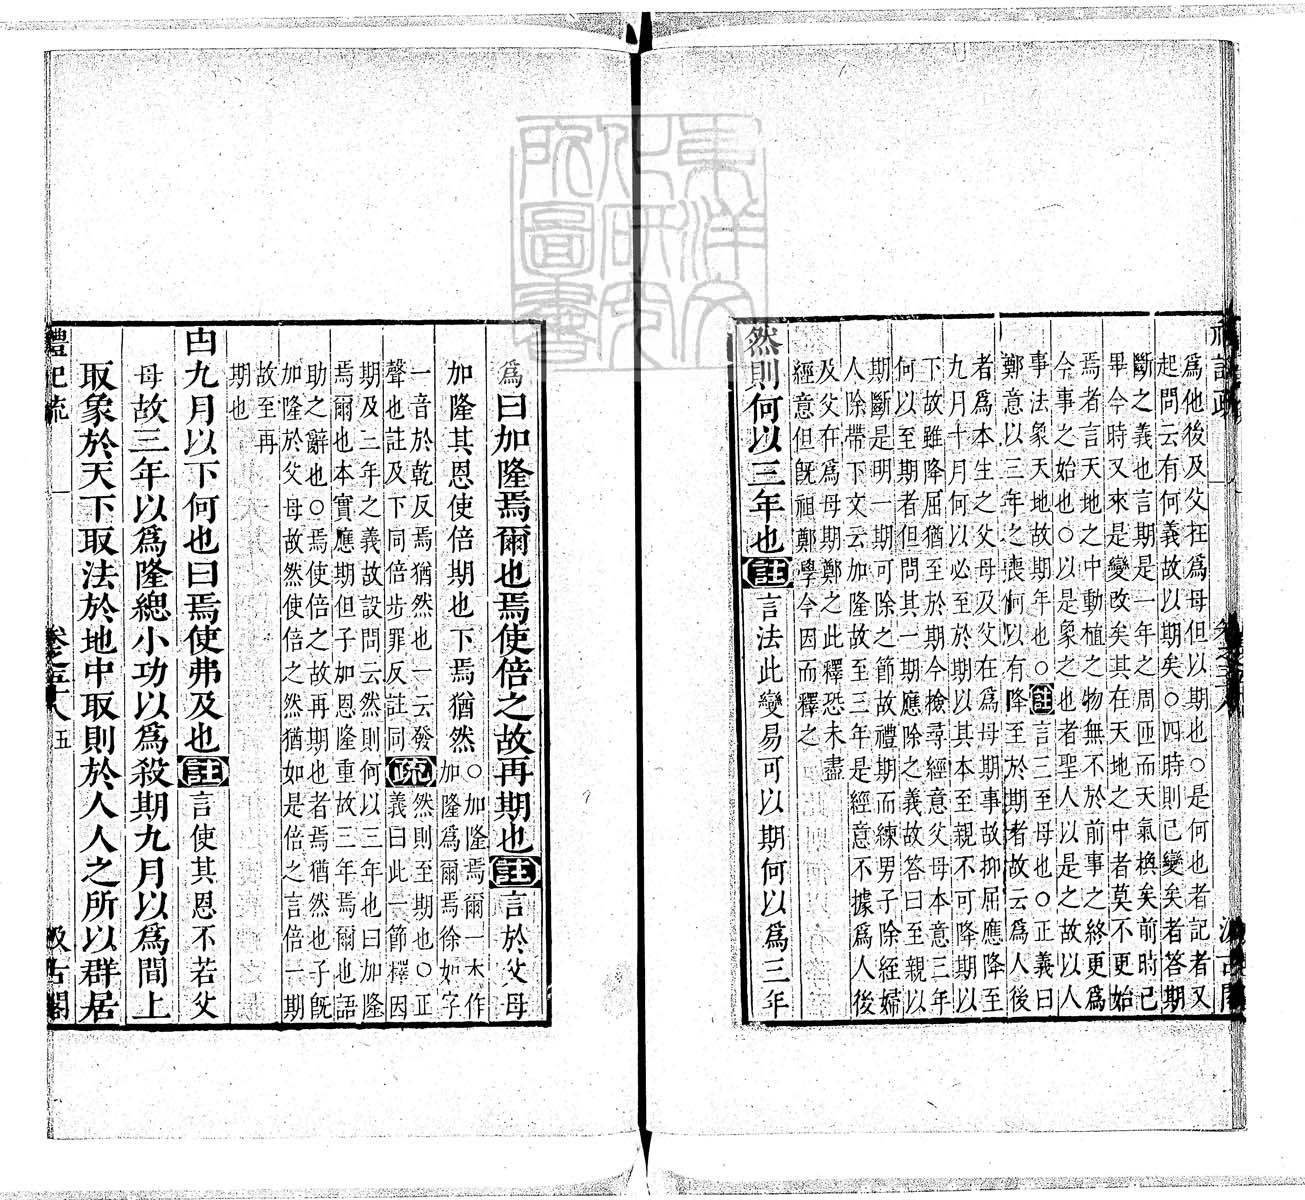 為他後及父在為母但以期也○是何也者記者又
起問云有何義故以期矣○四時則已變矣者答期
斷之義也言期是一年之周匝而天氣換矣前時已
畢今時又來是變改矣其在天地之中者莫不更始
焉者言天地之中動植之物無不於前事之終更為
今事之始也○以是象之也者聖人以是之故以人
事法象天地故期年也○註言三至母也○正義曰
鄭意以三年之喪何以有降至於期者故云為人後
者為本生之父母及父在為母期事故抑屈應降至
九月十月何以必至於期以其本至親不可降期以
下故雖降屈猶至於期今檢尋經意父母本意三年
何以至期者但問其一期應除之義故答曰至親以
期斷是明一期可除之節故禮期而練男子除絰婦
人除帶下文云加隆故至三年是經意不據為人後
及父在為母期鄭之此釋恐未盡
經意但旣祖鄭學今因而釋之
然則何以三年也註言法此變易可以期何以為三年
為曰加隆焉爾也焉使倍之故再期也註言於父母
加隆其恩使倍期也下焉猶然○加隆焉爾一本作
加隆為爾焉徐如字
一音於乾反焉猶然也一云發
聲也註及下同倍步罪反註同疏然則至期也○正
義曰此一節釋因
期及二年之義故設問云然則何以三年也曰加隆
焉爾也本實應期但子如恩隆重故三年焉爾也語
助之辭也○焉使倍之故再期也者焉猶然也子旣
加隆於父母故然使倍之然猶如是倍之言倍一期
故至再
期也
由九月以下何也曰焉使弗及也註言使其恩不若父
母故三年以為隆緦小功以為殺期九月以為間上
取象於天下取法於地中取則於人人之所以群居
禮記疏 卷之五十八 五 汲古閣